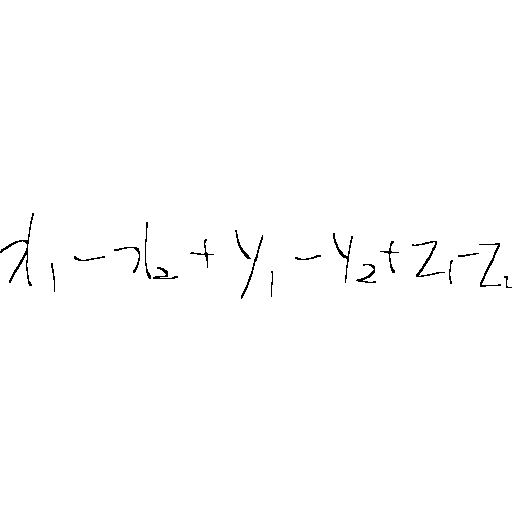 x₁ - x₂ + y₁ - y₂ + z₁ - z₂